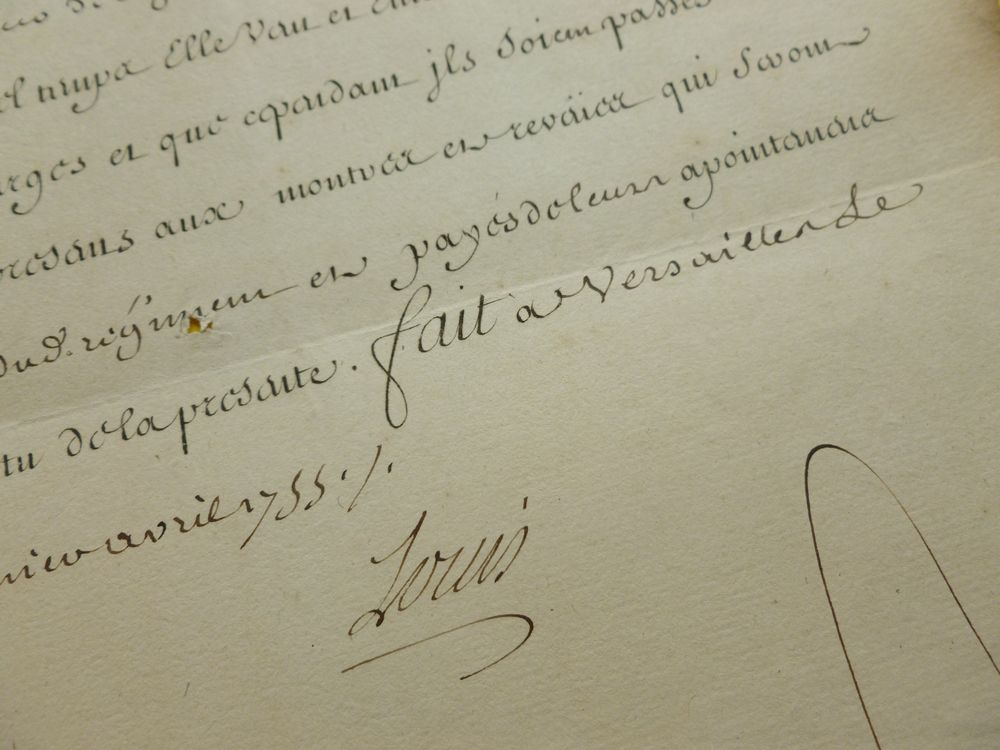 Elle Veut et
arges et que cependant jls Soient passés
presens aux montres et reveües qui Seront
dud. regiment et payés de leurs apointemens
tu de la presente. fait a Versailles Le
mier avril 1755 ./.
Louis